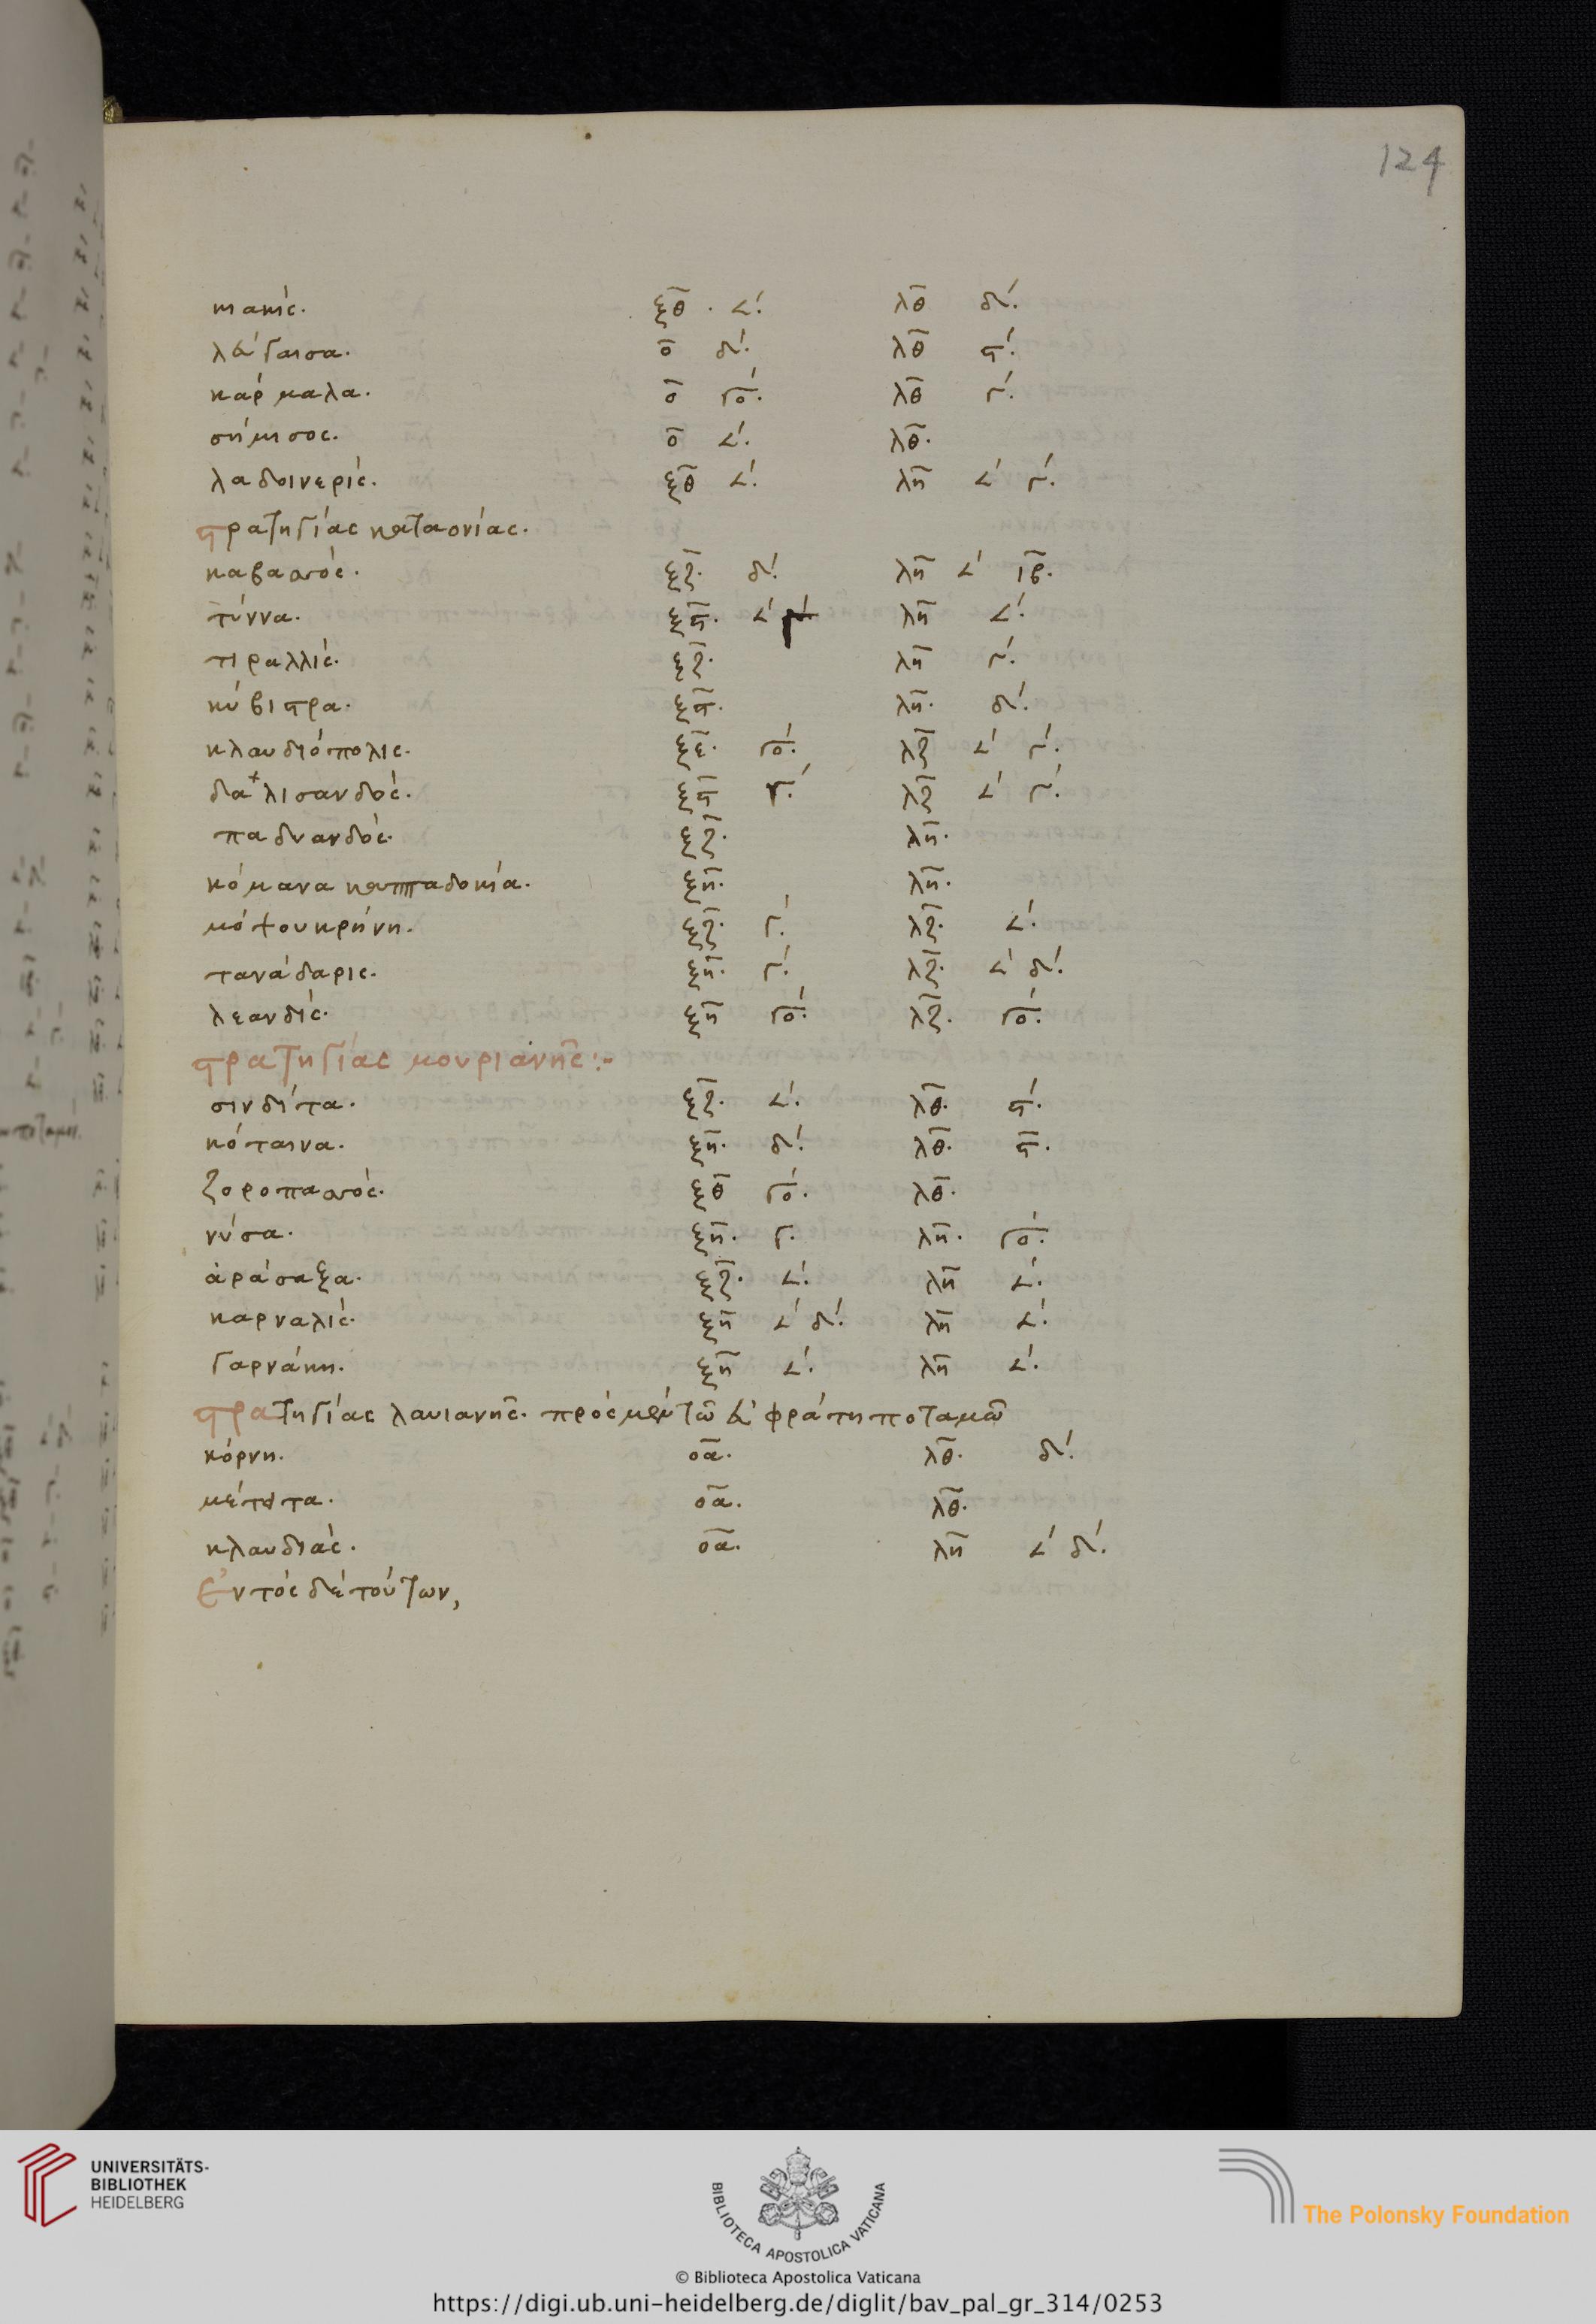 124
κιακίς. ξθ · 𐅵. λθ δ'.
λεύγαισα. ο δ'. λθ ϛ'.
κάρμαλα. ο γο. λθ γ'.
σήμισος. ο 𐅵. λθ.
λαδοινερίς. ξθ 𐅵. λη 𐅵 γ'.
στρατηγίας καταονίας.
καβασσός. ξζ. δ'. λη 𐅵 ιβ.
τύννα. ξϛ. 𐅵 λη 𐅵.
τιραλλίς. ξζ. λη γ'.
κύβιστρα. ξϛ. λη. δ'.
κλαυδιόπολις. ξε. γο. λζ 𐅵 γ'.
δαλισανδός. ξϛ γ'. λζ 𐅵 γ'.
παδυανδός. ξζ. λη.
κόμανα καππαδοκία. ξη. λη.
μόψου κρήνη. ξζ. γ'. λζ. 𐅵.
τανάδαρις. ξη. γ'. λζ. 𐅵 δ'.
λεανδίς. ξη γο. λζ. γο.
στρατηγίας μουριανῆς:-
σινδίτα. ξζ. 𐅵. λθ. ϛ'.
κόταινα. ξη. δ'. λθ. ϛ.
ζοροπασσός. ξθ γο. λθ.
νύσα. ξη. γ. λη. γο.
ἀράσαξα. ξζ. 𐅵. λη 𐅵.
καρναλίς. ξη 𐅵 δ'. λη 𐅵.
γαρνάκη. ξη 𐅵. λη 𐅵.
στρατηγίας λαυιανῆς. πρὸς μὲν τῶ εὐφράτη ποταμῶ
κόρνη. οα. λθ. δ'.
μέτιτα. οα. λθ.
κλαυδιάς. οα. λη 𐅵 δ'.
Ἐντὸς δὲ τούτων,
UNIVERSITÄTS-
BIBLIOTHEK
HEIDELBERG
BIBLIOTECA APOSTOLICA VATICANA
The Polonsky Foundation
© Biblioteca Apostolica Vaticana
https://digi.ub.uni-heidelberg.de/diglit/bav_pal_gr_314/0253